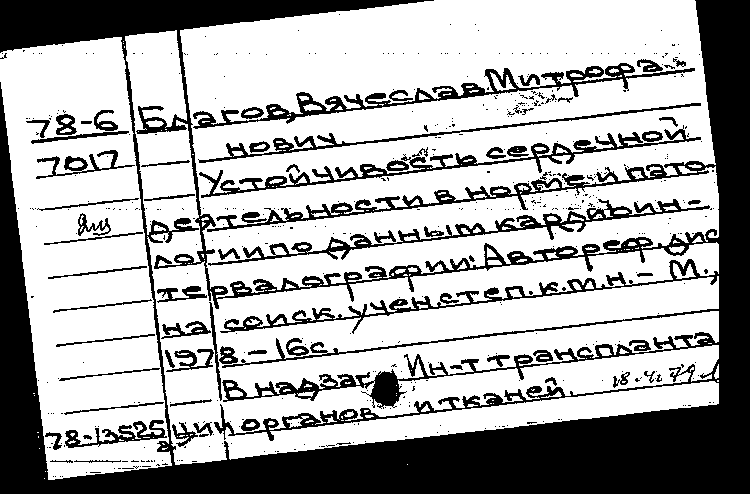 78-6 Благов, Вячеслав Митрофа-
7017 нович.
Устойчивость сердечной
деятельности в норме и пато-
логии по данным кардиоин-
тервалографии: Автореф. дис
на соиск. учен. степ. к.м.н. - М.,
1978. - 16с.
В надзаг Ин-т транспланта
78-13525 ции органов и тканей.